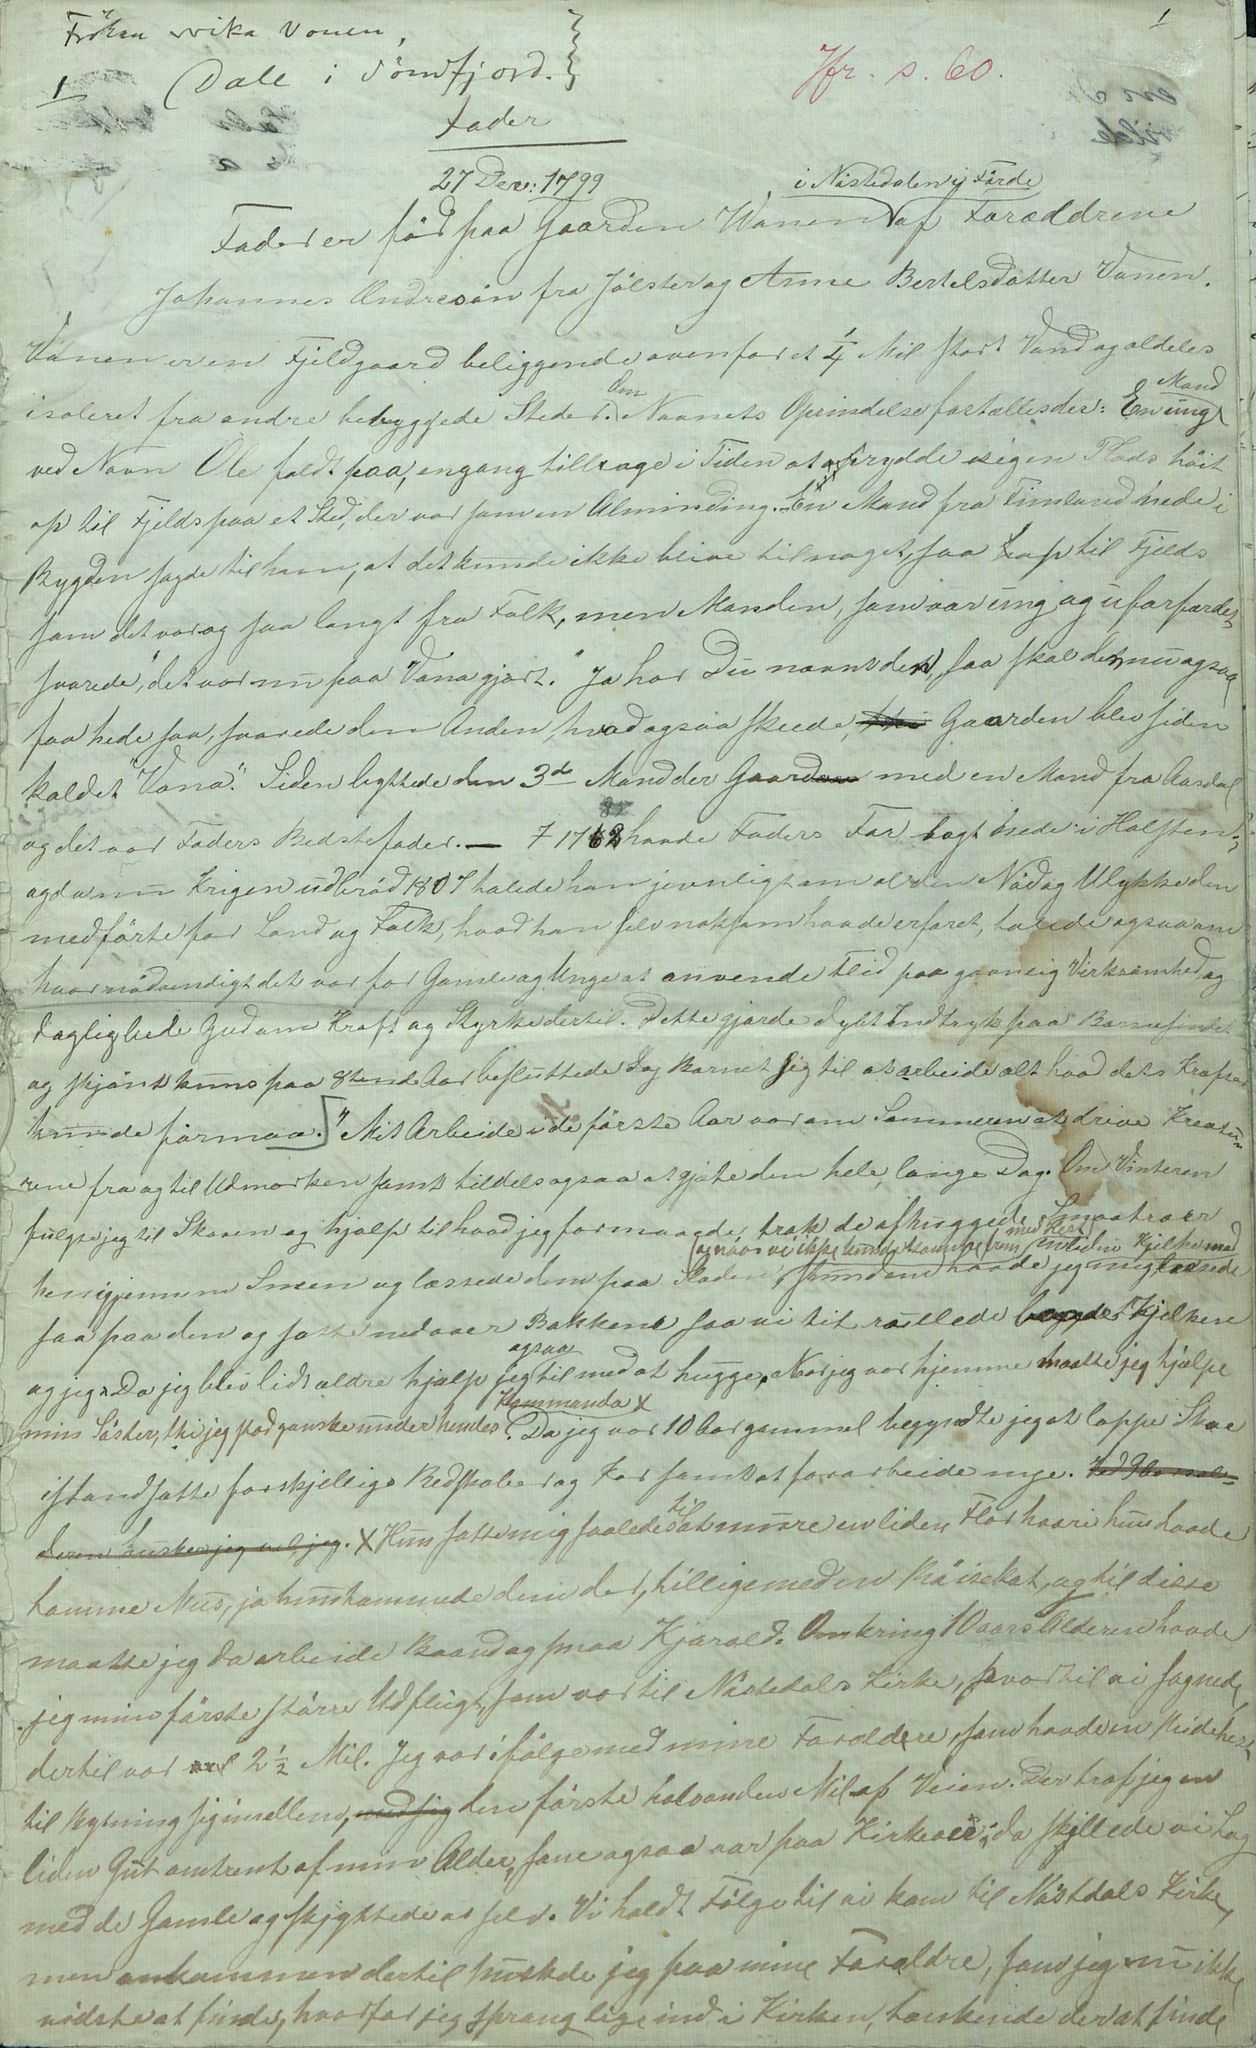 Fröken Vrika Vonen,
1
Dale i Söndfjord.
1
Jfr. s. 60.
Fader
27 Dec: 1799
i Nöstedalen i Förde
Fader er föd paa Gaarden Vonen af Foræddrene
Johannes Andresön fra Jölster og Anne Bertelsdatter Vonen.
Vonen er en Fjeldgaard beliggende ovenfor et 1/4 Mil stort Vand og aldeles
isoleret fra andre bebyggede Steder. Om Navnets Oprindelse fortælles der: En ung Mand
ved Navn Ole faldt paa, engang tillage i Tiden at oprydde sig en Plads höit
op til Fjelds paa et Sted, der var som en Alminding. En Mand fra Timland nede i
Bygden sagde til ham, at det kunde ikke blive til noget, saa höit op til Fjelds
som det var og saa langt fra Folk, men Manden, som var ung og uforfærdet,
svarede, "det var nu paa Vona gjort." Ja har Du nævnt den, saa skal den nu ogsaa
faa hede saa, svarede den Anden, hvad ogsaa skeede, thi Gaarden blev siden
kaldet "Vona". Siden byttede den 3de Mand der Gaarden med en Mand fra Aasdal
og det var Faders Bedstefader. — I 1762 havde Faders Far lagt nede i Holsten,
og da nu Krigen udbröd 1807 talede han jevnligt om al den Nöd og Ulykke den
medförte for Land og Folk, hvad han selv noksom havde erfaret, talede ogsaa om
hvor nödvendigt det var for Gamle og Unge at anvende Flid paa gavnlig Virksomhed og
daglig bede Gud om Kraft og Styrke dertil. Dette gjorde dybt Indtryk paa Barnesindet
og skjönt kuns paa 8tende Aar besluttede dog Barnet sig til at arbeide alt hvad dets Kræfter
kunde formaa. "Mit Arbeide i de förste Aar var om Sommeren at drive Kreatu-
rene fra og til Udmarken samt tildels ogsaa at gjæte den hele, lange Dag. Om Vinteren
fulgte jeg til Skoven og hjalp til hvad jeg formaaede, trak de afhuggede Smaatræer
hen igjennem Sneen og læssede dem paa Slæden, (og naar vi ikke kunde komme frem med Hest) stundom havde jeg en liden Kjelke med mig læssede
saa paa den og satte nedover Bakkene saa vi tit rullede begge Kjelken
og jeg. Da jeg blev lidt ældre hjalp jeg ogsaa til med at hugge. Naar jeg var hjemme maatte jeg hjælpe
min Söster, thi jeg stod ganske under hendes Kommando X. Da jeg var 10 Aar gammel begyndte jeg at lappe Skoe
istandsatte forskjellige Redskaber og Kar samt at forarbeide nye. Ved Barnealde-
deren husker jeg vel jeg. X Hun satte mig saaledes til at mure en liden Flor hvori hun havde
tamme Mus, ja hun tammede dem der, tilligemed en Röisekat, og til disse
maatte jeg da arbeide Baand og smaa Kjørald. Omkring 10 aars Alderen havde
jeg min förste större Udflugt, som var til Nöstedals Kirke, hvortil vi sognede,
dertil var vel 2 1/2 Mil. Jeg var i fölge med mine Foræddre, som havde en Ridehest
til Bytning sig imellem, ved sig den förste halvanden Mil af Veien. Der traf jeg en
liden Gut omtrent af min Alder, som ogsaa var paa Kirkevei; da skillede vi Lag
med de Gamle og skjyttede os selv. Vi holdt Fölge til vi kom til Nöstdals Kirke,
men ankommen dertil puskede jeg paa mine Foræddre, som jeg nu ikke
vidste at finde, hvorfor jeg sprang lige ind i Kirken, tænkende der at finde